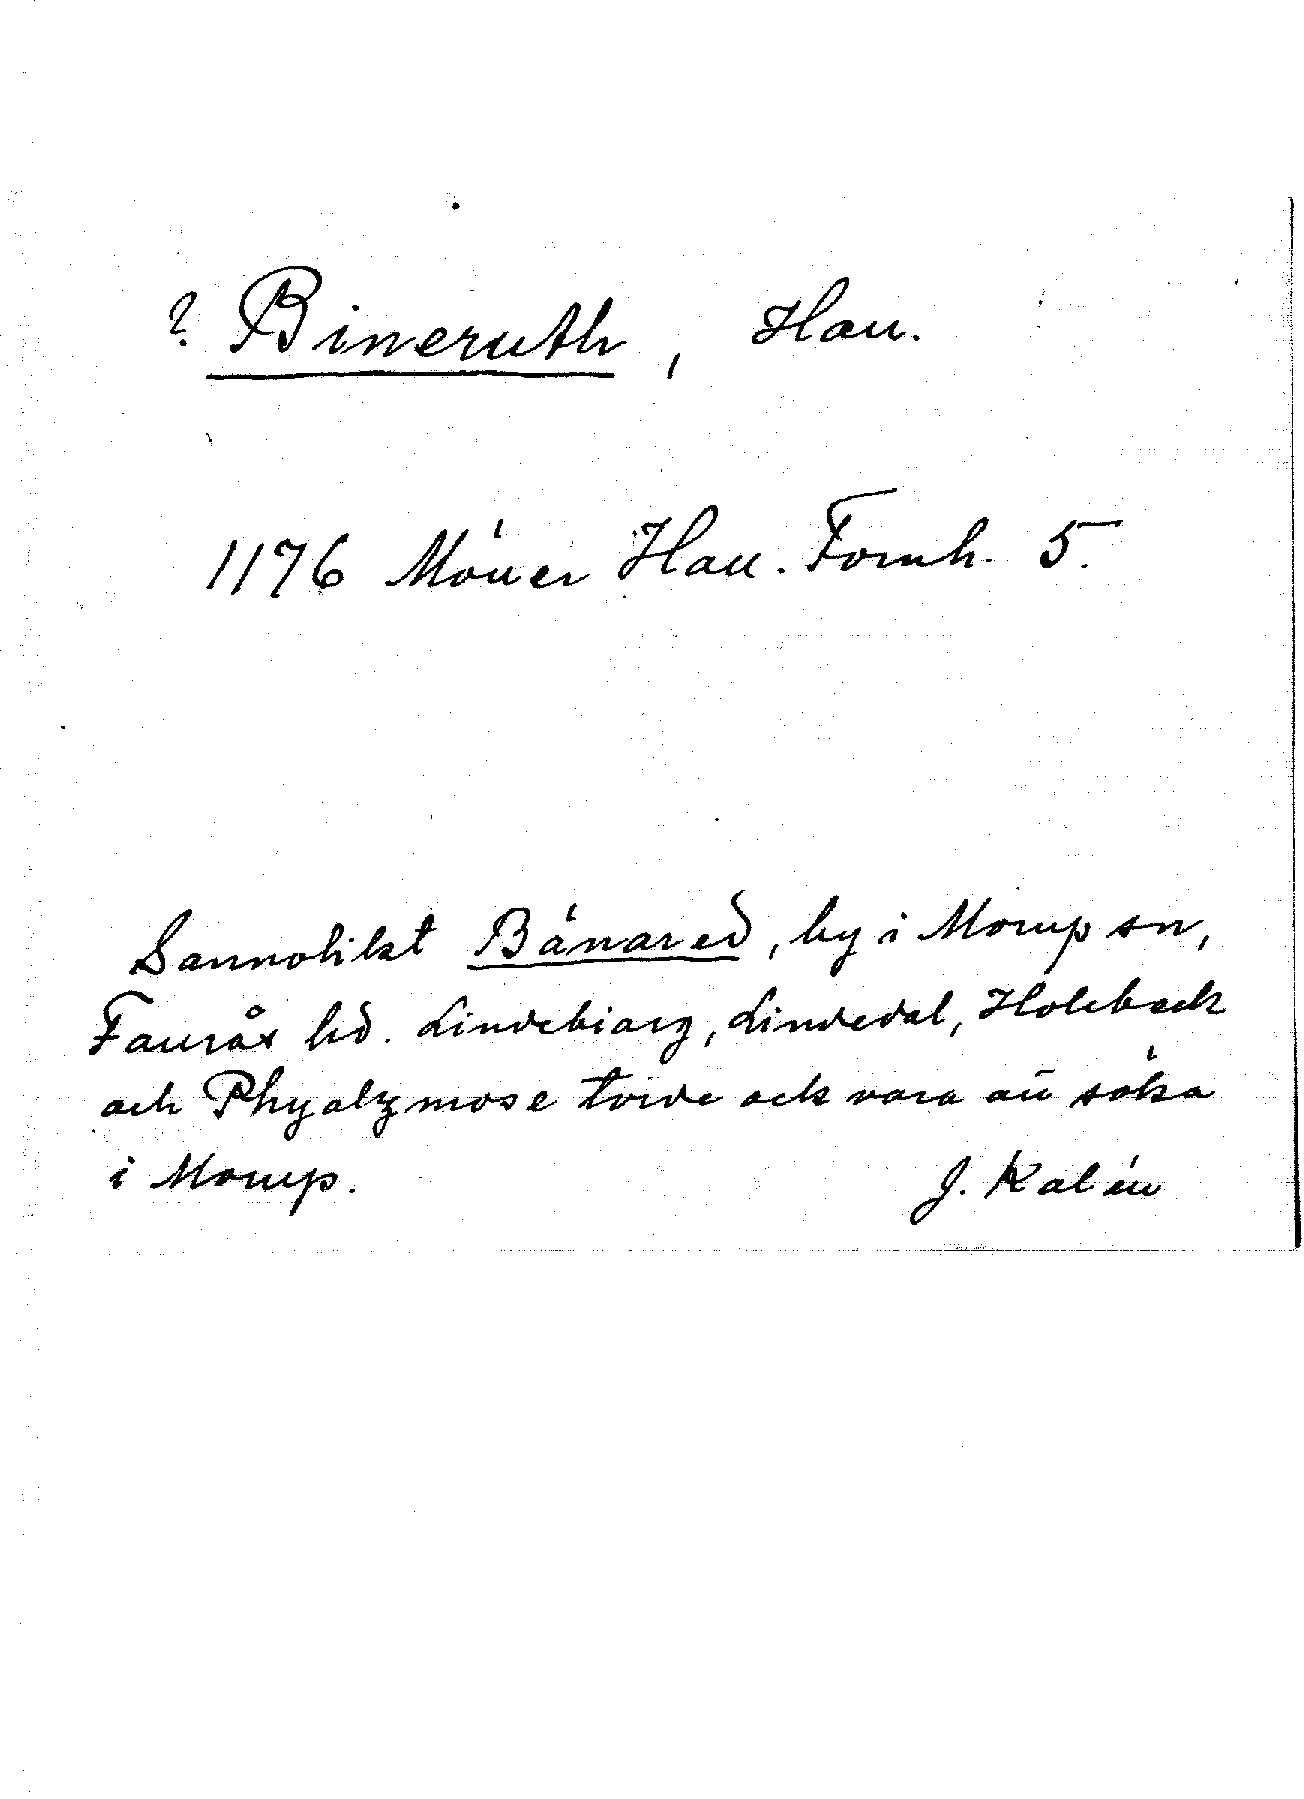 ? Bineruth, Hall.
1176 Möller Hall. Fornh. 5.
Sannolikt Bänared, by i Morup sn,
Faurås hd. Lindebiarg, Lindedal, Holeback
och Phyalzmose torde ock vara att söka
i Morup. J. Kalén